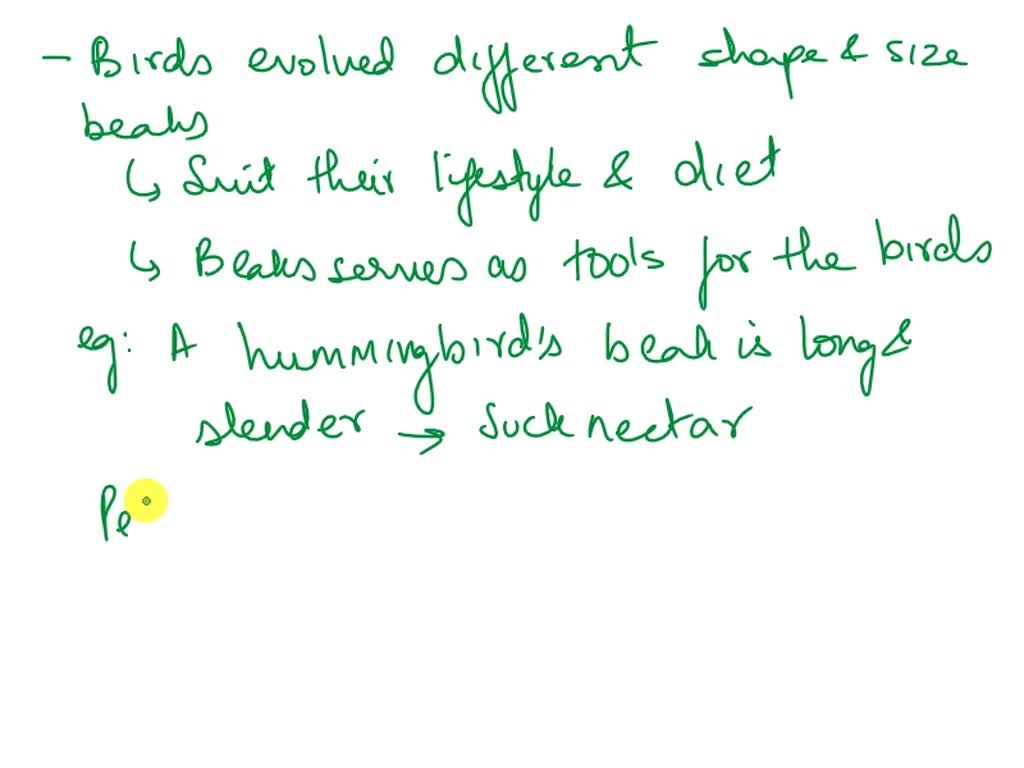 - Birds evolved different shape & size
beaks
↳ Suit their lifestyle & diet
↳ Beaks serves as tools for the birds
eg: A hummingbird's beak is long &
slender → Suck nectar
Pe